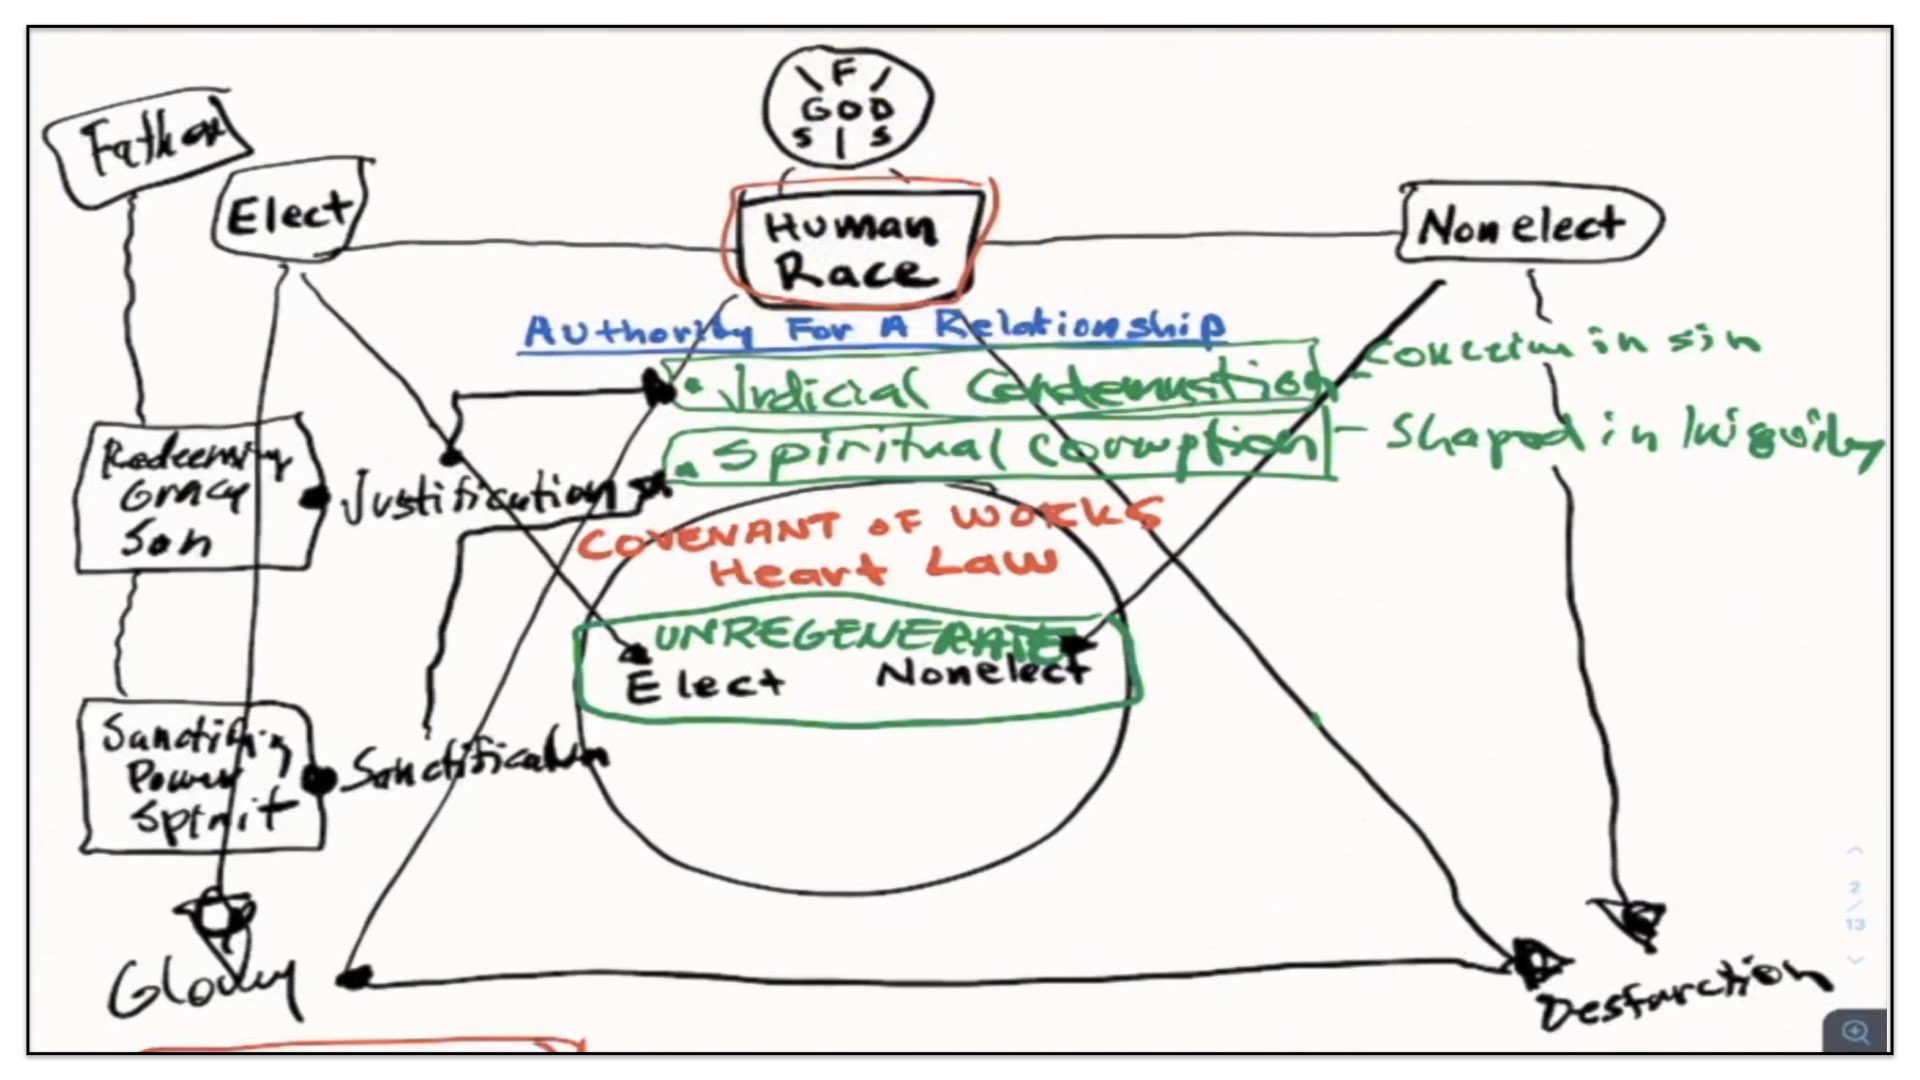 \ F /
GOD
S | S
Father
Elect
Human
Race
Nonelect
Authority For A Relationship
• Judicial Condemnation - in sin
• Spiritual Corruption - Shaped in
Redeeming
Gracy
Son
Justification
COVENANT OF WORKS
Heart Law
UNREGENERATE
Elect Nonelect
Power
Spirit
Sanctification
Glory
Desturction
2
/
13